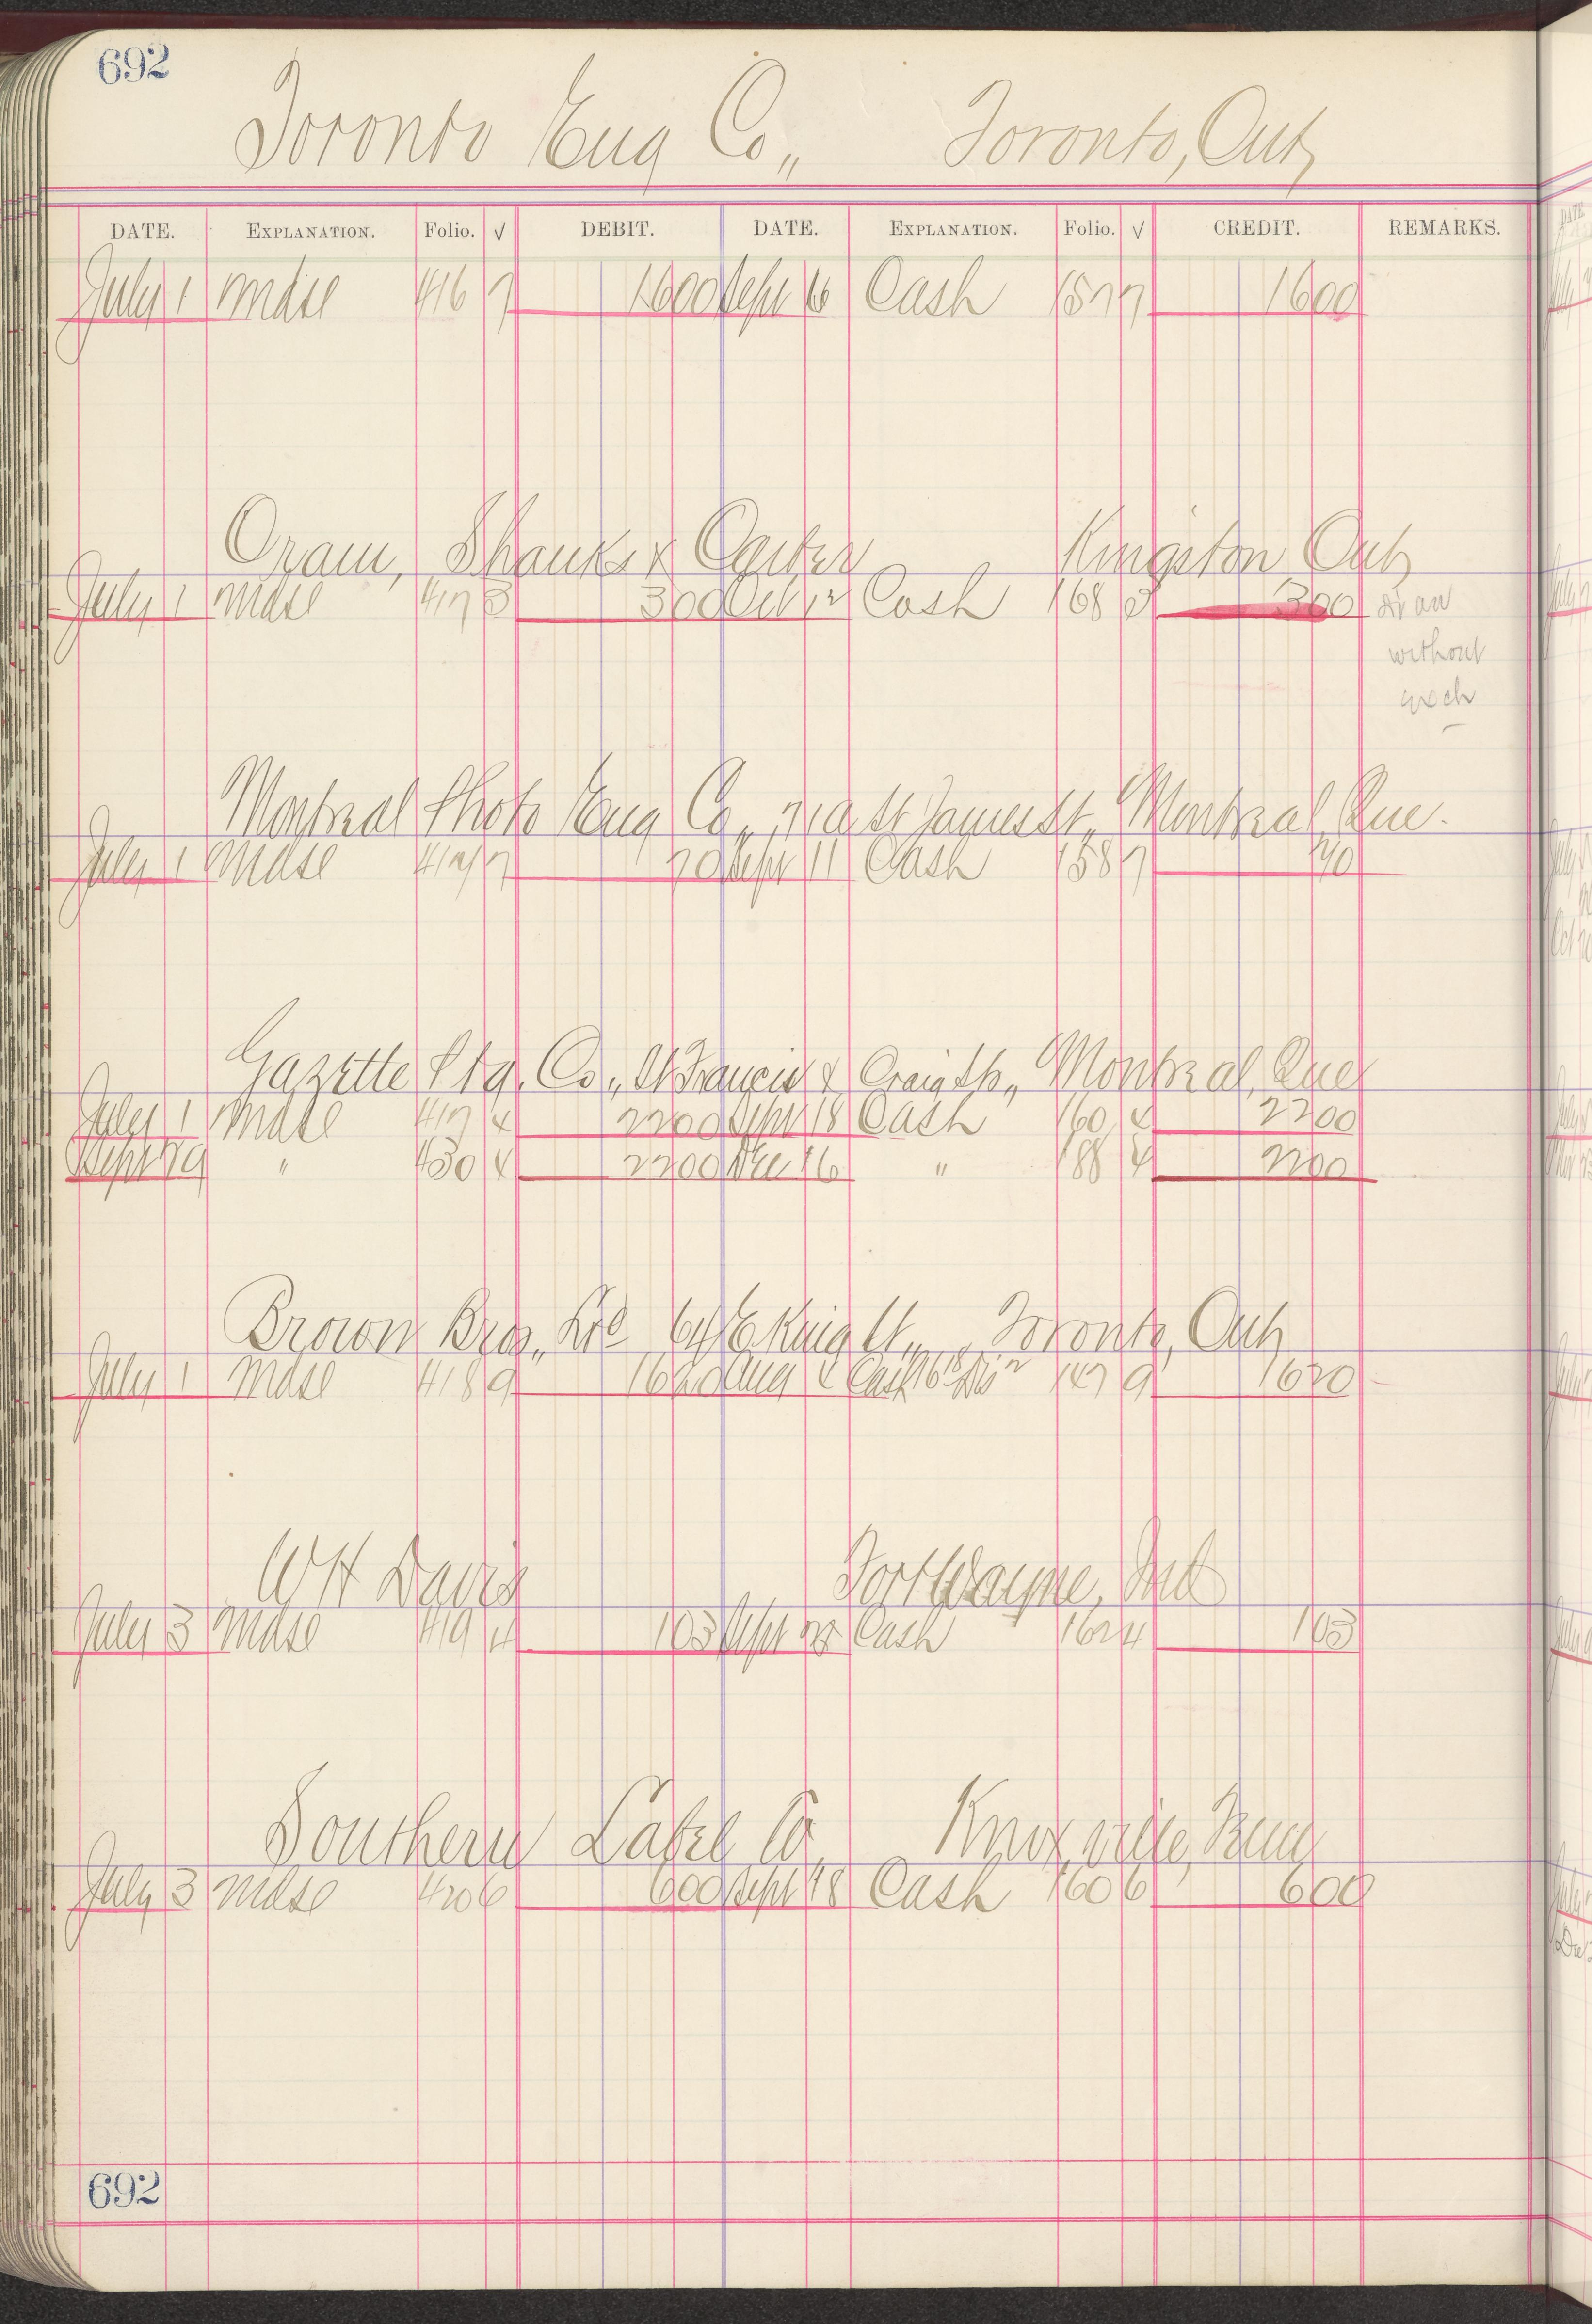 692
Toronto Eng Co., Toronto, Ont
DATE. EXPLANATION. Folio. √ DEBIT. DATE. EXPLANATION. Folio. √ CREDIT. REMARKS.
July 1 Mdse 416 7 1600 Sept 16 Cash 159 7 1600
Oram, Shanks & Carter Kingston Ont
July 1 Mdse 417 3 300 Oct 12 Cash 168 3 300 dr an
without
exch
Montreal Photo Eng Co., St James St., Montreal, Que.
July 1 Mdse 417 7 70 Sept 11 Cash 158 7 70
Gazette Ptg. Co., St Francis & Craig Sts., Montreal, Que
July 1 Mdse 417 4 2200 Sept 18 Cash 160 4 2200
Sept 29 " 450 4 2200 Dec 16 " 188 4 2200
Brown Bros., Ltd 64 E King St., Toronto, Ont
July 1 Mdse 418 9 1620 Aug Cash 147 9 1620
W H Davis Fort Wayne, Ind
July 3 Mdse 419 4 103 Sept 28 Cash 162 4 103
Southern Label Co, Knoxville, Tenn
July 3 Mdse 420 6 600 Sept 18 Cash 160 6 600
692